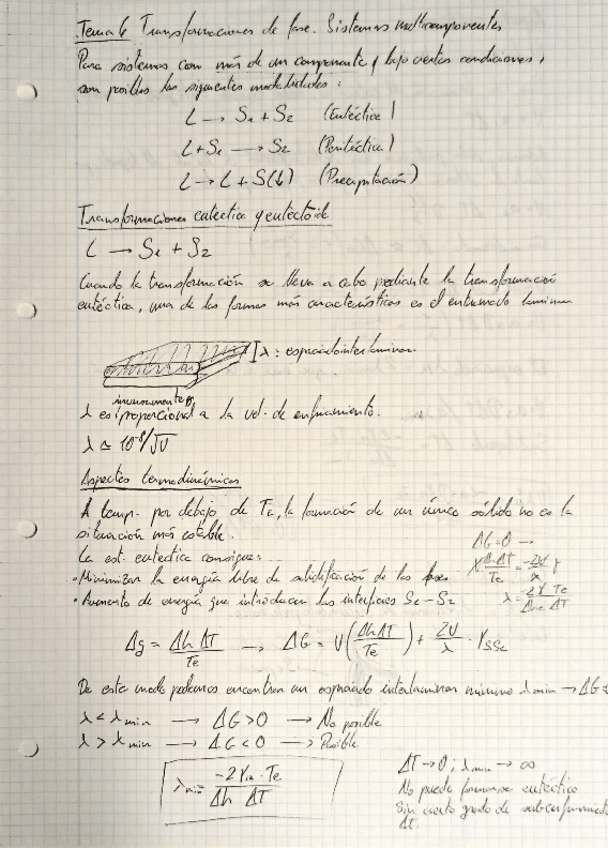 Tema 6 Transformaciones de fase. Sistemas multicomponentes
Para sistemas con más de un componente y bajo ciertas condiciones,
son posibles las siguientes modalidades:
L → S₁ + S₂ (Eutéctica)
L + S₁ → S₂ (Peritéctica)
L → L + S(↓) (Precipitación)
Transformaciones eutéctica y eutectoide
L → S₁ + S₂
Cuando la transformación se lleva a cabo mediante la transformación
eutéctica, una de las formas más características es el entramado laminar
λ: espaciado interlaminar.
inversamente
λ es proporcional a la vel. de enfriamiento.
λ ≃ 10⁻⁸/√V
Aspectos termodinámicos
A temp. por debajo de Te, la formación de un único sólido no es la
situación más estable.
La est. eutéctica consigue:
• Minimizar la energía libre de solidificación de las fases
• Aumento de energía que introducen las interfases S₁–S₂
ΔG = 0 →
λ = -2γ Te / ΔT
Δg = Δh ΔT / Te → ΔG = V(Δh ΔT / Te) + 2V/λ · γs₁s₂
De este modo podemos encontrar un espaciado interlaminar mínimo λmin → ΔG
λ < λmin → ΔG > 0 → No posible
λ > λmin → ΔG < 0 → Posible
λmin = -2γ₁₂ · Te / Δh ΔT
ΔT → 0; λmin → ∞
No puede formarse eutéctico
Sin cierto grado de subenfriamiento
ΔT.